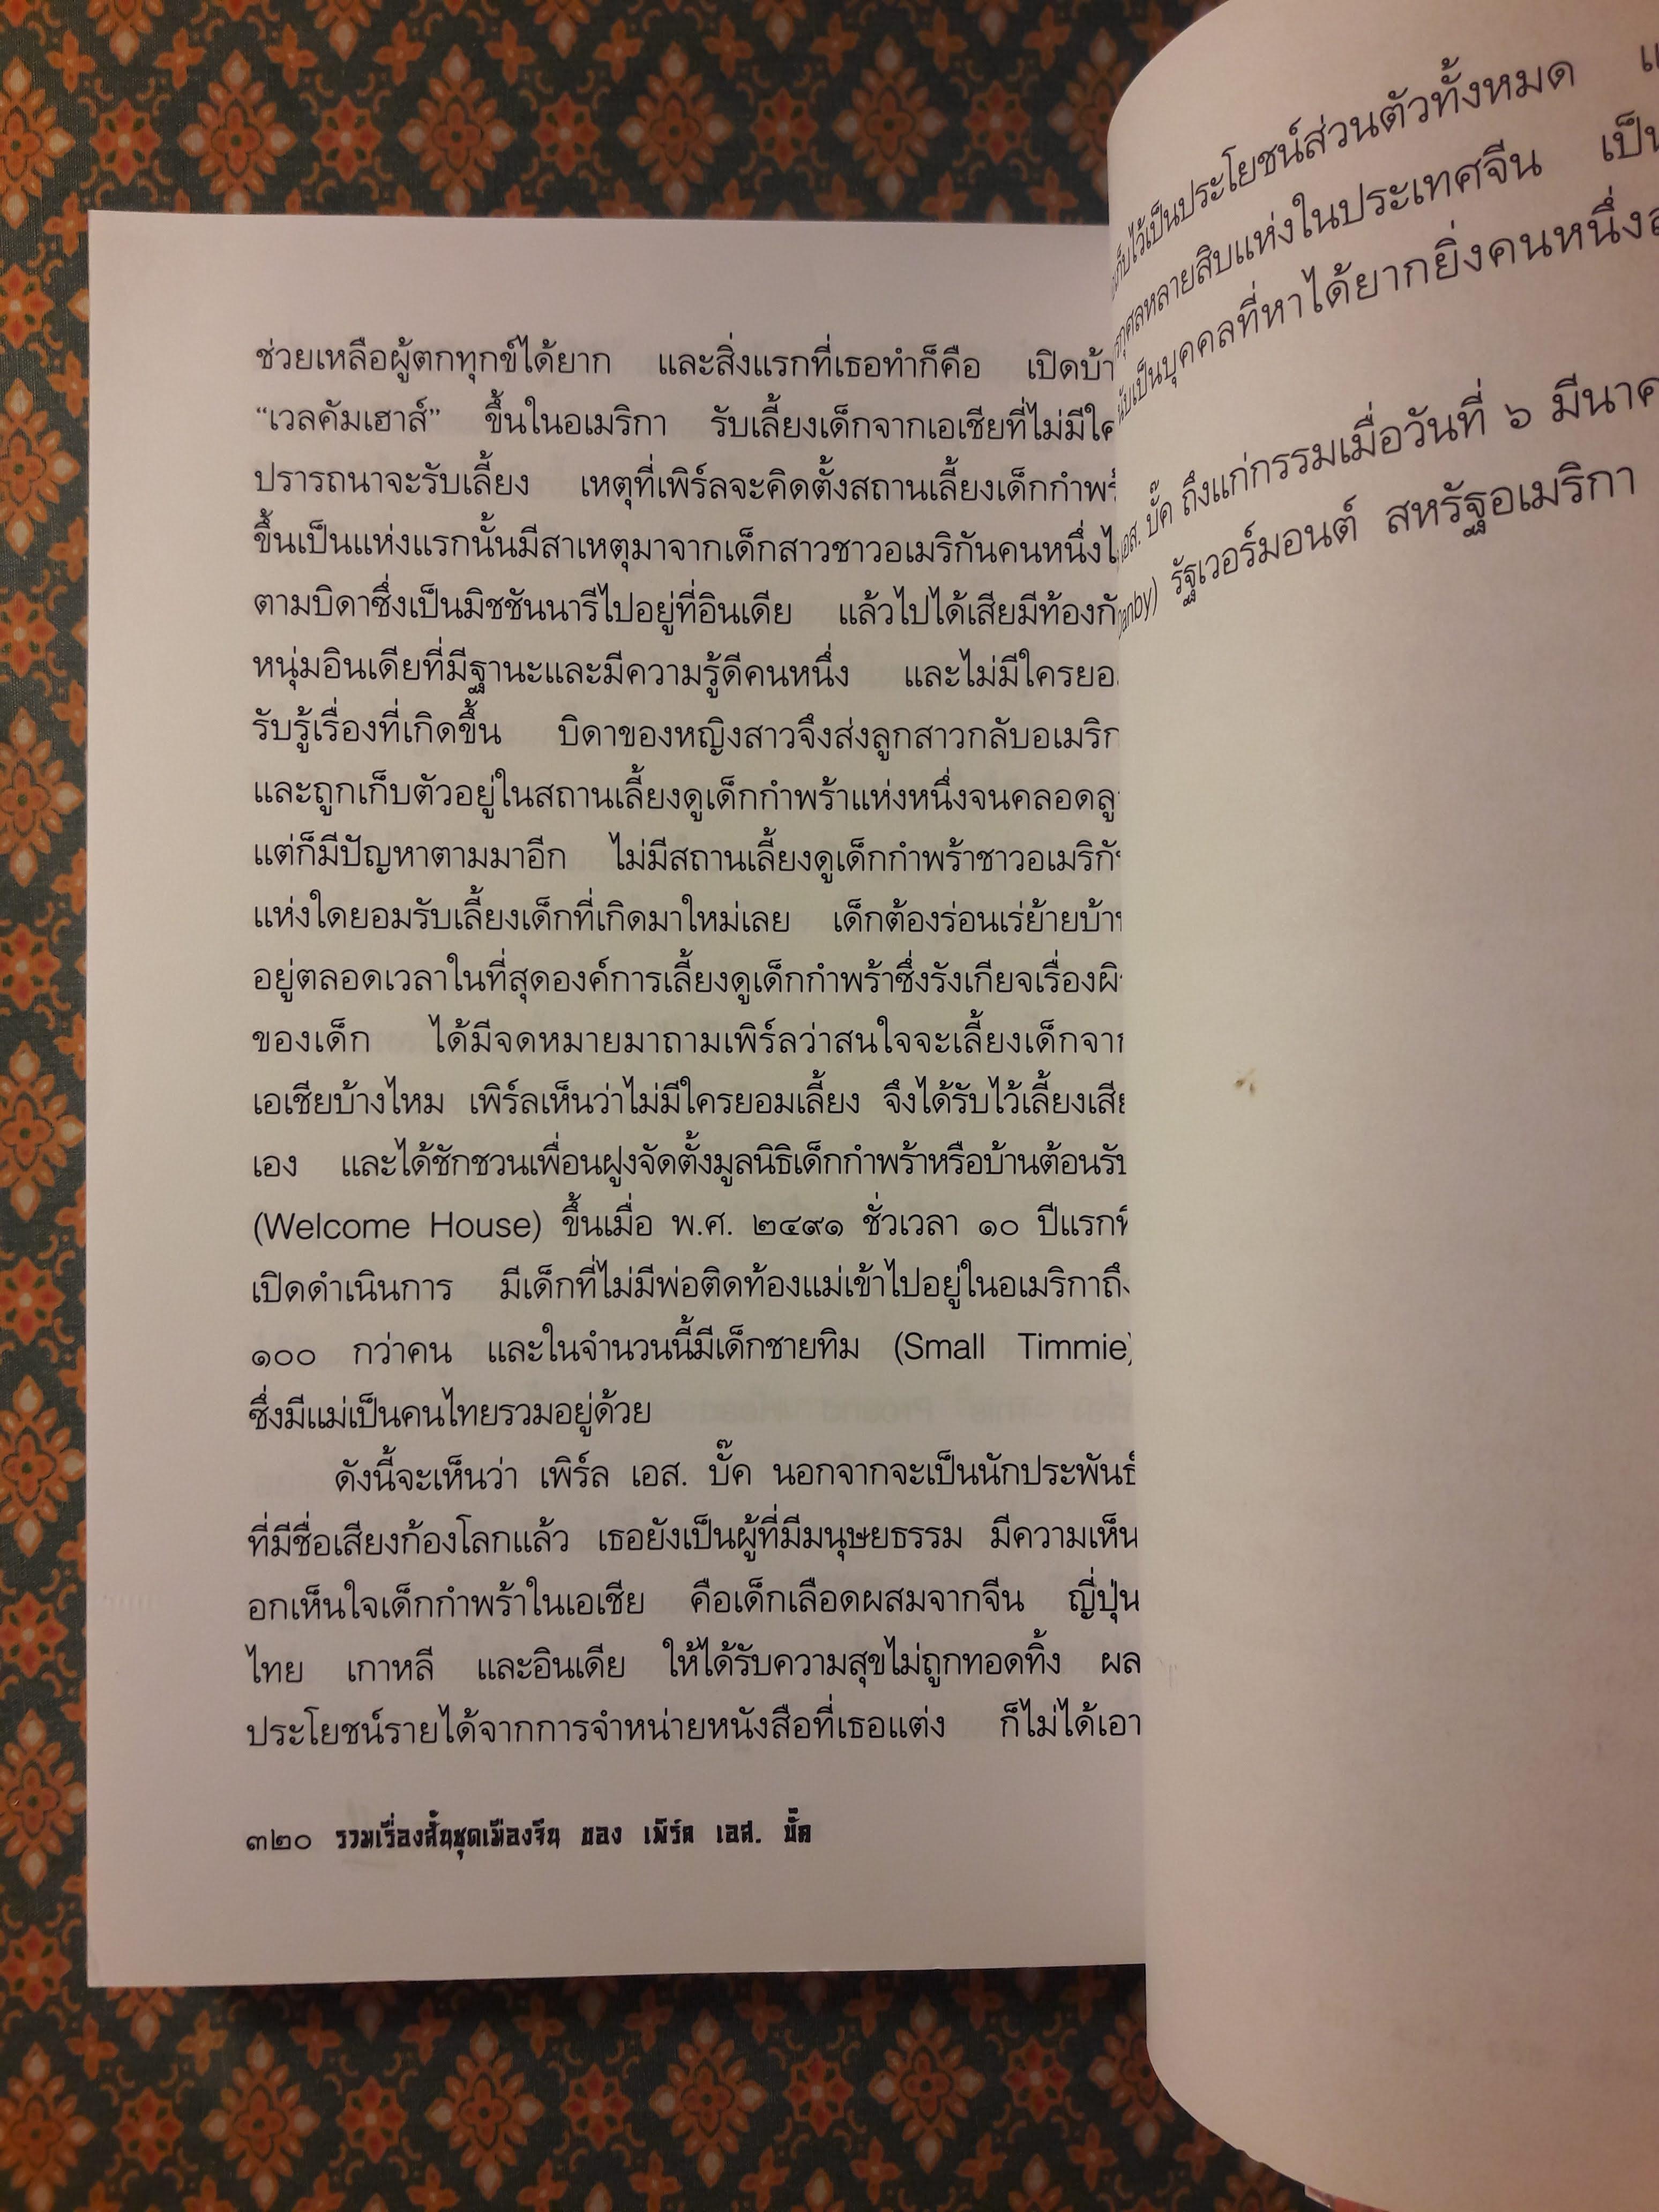 ช่วยเหลือผู้ตกทุกข์ได้ยาก และสิ่งแรกที่เธอทำก็คือ เปิดบ้า
“เวลคัมเฮาส์” ขึ้นในอเมริกา รับเลี้ยงเด็กจากเอเชียที่ไม่มีใค
ปรารถนาจะรับเลี้ยง เหตุที่เพิร์ลจะคิดตั้งสถานเลี้ยงเด็กกำพร
ขึ้นเป็นแห่งแรกนั้นมีสาเหตุมาจากเด็กสาวชาวอเมริกันคนหนึ่งไ
ตามบิดาซึ่งเป็นมิชชันนารีไปอยู่ที่อินเดีย แล้วไปได้เสียมีท้องกั
หนุ่มอินเดียที่มีฐานะและมีความรู้ดีคนหนึ่ง และไม่มีใครยอ
รับรู้เรื่องที่เกิดขึ้น บิดาของหญิงสาวจึงส่งลูกสาวกลับอเมริก
และถูกเก็บตัวอยู่ในสถานเลี้ยงดูเด็กกำพร้าแห่งหนึ่งจนคลอดลู
แต่ก็มีปัญหาตามมาอีก ไม่มีสถานเลี้ยงดูเด็กกำพร้าชาวอเมริกั
แห่งใดยอมรับเลี้ยงเด็กที่เกิดมาใหม่เลย เด็กต้องร่อนเร่ย้ายบ้า
อยู่ตลอดเวลาในที่สุดองค์การเลี้ยงดูเด็กกำพร้าซึ่งรังเกียจเรื่องผิ
ของเด็ก ได้มีจดหมายมาถามเพิร์ลว่าสนใจจะเลี้ยงเด็กจาก
เอเชียบ้างไหม เพิร์ลเห็นว่าไม่มีใครยอมเลี้ยง จึงได้รับไว้เลี้ยงเสีย
เอง และได้ชักชวนเพื่อนฝูงจัดตั้งมูลนิธิเด็กกำพร้าหรือบ้านต้อนรับ
(Welcome House) ขึ้นเมื่อ พ.ศ. ๒๔๙๑ ชั่วเวลา ๑๐ ปีแรกที่
เปิดดำเนินการ มีเด็กที่ไม่มีพ่อติดท้องแม่เข้าไปอยู่ในอเมริกาถึง
๑๐๐ กว่าคน และในจำนวนนี้มีเด็กชายทิม (Small Timmie)
ซึ่งมีแม่เป็นคนไทยรวมอยู่ด้วย
ดังนี้จะเห็นว่า เพิร์ล เอส. บั๊ค นอกจากจะเป็นนักประพันธ์
ที่มีชื่อเสียงก้องโลกแล้ว เธอยังเป็นผู้ที่มีมนุษยธรรม มีความเห็น
อกเห็นใจเด็กกำพร้าในเอเชีย คือเด็กเลือดผสมจากจีน ญี่ปุ่น
ไทย เกาหลี และอินเดีย ให้ได้รับความสุขไม่ถูกทอดทิ้ง ผล
ประโยชน์รายได้จากการจำหน่ายหนังสือที่เธอแต่ง ก็ไม่ได้เอา
๓๒๐ รวมเรื่องสั้นชุดเมืองจีน ของ เพิร์ล เอส. บั๊ค
เก็บไว้เป็นประโยชน์ส่วนตัวทั้งหมด แ
กุศลหลายสิบแห่งในประเทศจีน เป็น
นับเป็นบุคคลที่หาได้ยากยิ่งคนหนึ่ง
เอส. บั๊ค ถึงแก่กรรมเมื่อวันที่ ๖ มีนาค
anby) รัฐเวอร์มอนต์ สหรัฐอเมริกา